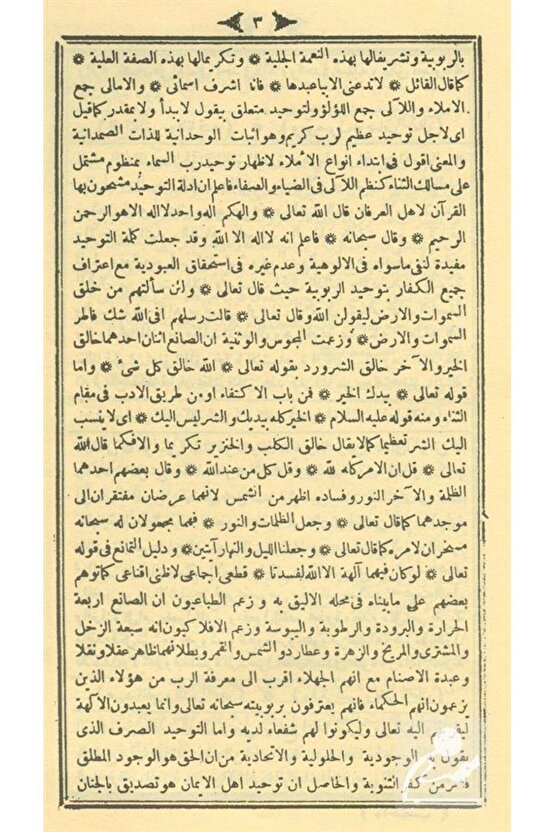 ٣
بالربوبية وتشريفالها بهذه النعمة الجلية * وتكريمالها بهذه الصفة العلية *
كماقال القائل * لاتدعنى الابياعبدها * فانه اشرف اسمائى * والامالى جمع
الاملاء واللآلى جمع اللؤلؤ ولتوحيد متعلق بيقول لابيدأ ولابمقدر كماقيل
اى لاجل توحيد عظيم لرب كريم وهو اثبات الوحدانية للذات الصمدانية
والمعنى اقول فى ابتداء انواع الاملاء لاظهار توحيد رب السماء بمنظوم مشتمل
على مسالك الثناء كنظم اللآلى فى الضياء والصفاء فاعلم ان ادلة التوحيد مشحون بها
القرآن لاهل العرفان قال الله تعالى * والهكم اله واحد لااله الاهو الرحمن
الرحيم * وقال سبحانه * فاعلم انه لااله الا الله وقد جعلت كلمة التوحيد
مفيدة لنفى ماسواه فى الالوهية وعدم غيره فى استحقاق العبودية مع اعتراف
جميع الكفار بتوحيد الربوبية حيث قال تعالى * ولئن سألتهم من خلق
السموات والارض ليقولن الله وقال تعالى * قالت رسلهم افى الله شك فاطر
السموات والارض * وزعمت المجوس والوثنية ان الصانع اثنان احدهما خالق
الخير والآخر خالق الشر ورد بقوله تعالى * الله خالق كل شئ * واما
قوله تعالى * بيدك الخير * فمن باب الاكتفاء اومن طريق الادب فى مقام
الثناء ومنه قوله عليه السلام * الخير كله بيديك والشر ليس اليك * اى لاينسب
اليك الشر تعظيما كمالايقال خالق الكلب والخنزير تكريما والافكما قال الله
تعالى * قل ان الامر كله لله * وقل كل من عند الله * وقال بعضهم احدهما
الظلمة والآخر النور وفساده اظهر من الشمس لانهما عرضان مفتقران الى
موجدهما كما قال تعالى * وجعل الظلمات والنور * فهما مجعولان له سبحانه
مسخران لامره كماقال تعالى * وجعلنا الليل والنهار آيتين * ودليل التمانع فى قوله
تعالى * لوكان فيهما آلهة الا الله لفسدتا * قطعى اجماعى لاظنى اقناعى كماتوهم
بعضهم على مابيناه فى محله الاليق به وزعم الطباعيون ان الصانع اربعة
الحرارة والبرودة والرطوبة واليبوسة وزعم الافلاكيون انه سبعة الزحل
والمشترى والمريخ والزهرة وعطارد والشمس والقمر وبطلانهما ظاهر عقلا ونقلا
وعبدة الاصنام مع انهم الجهلاء اقرب الى معرفة الرب من هؤلاء الذين
يزعمون انهم الحكماء فانهم يعترفون بربوبيته سبحانه تعالى وانما يعبدون الآلهة
ليقربهم اليه تعالى وليكونوا لهم شفعاء لديه واما التوحيد الصرف الذى
يقول به الوجودية والحلولية والاتحادية من ان الحق هو الوجود المطلق
من كفر الثنوية والحاصل ان توحيد اهل الايمان هو تصديق بالجنان